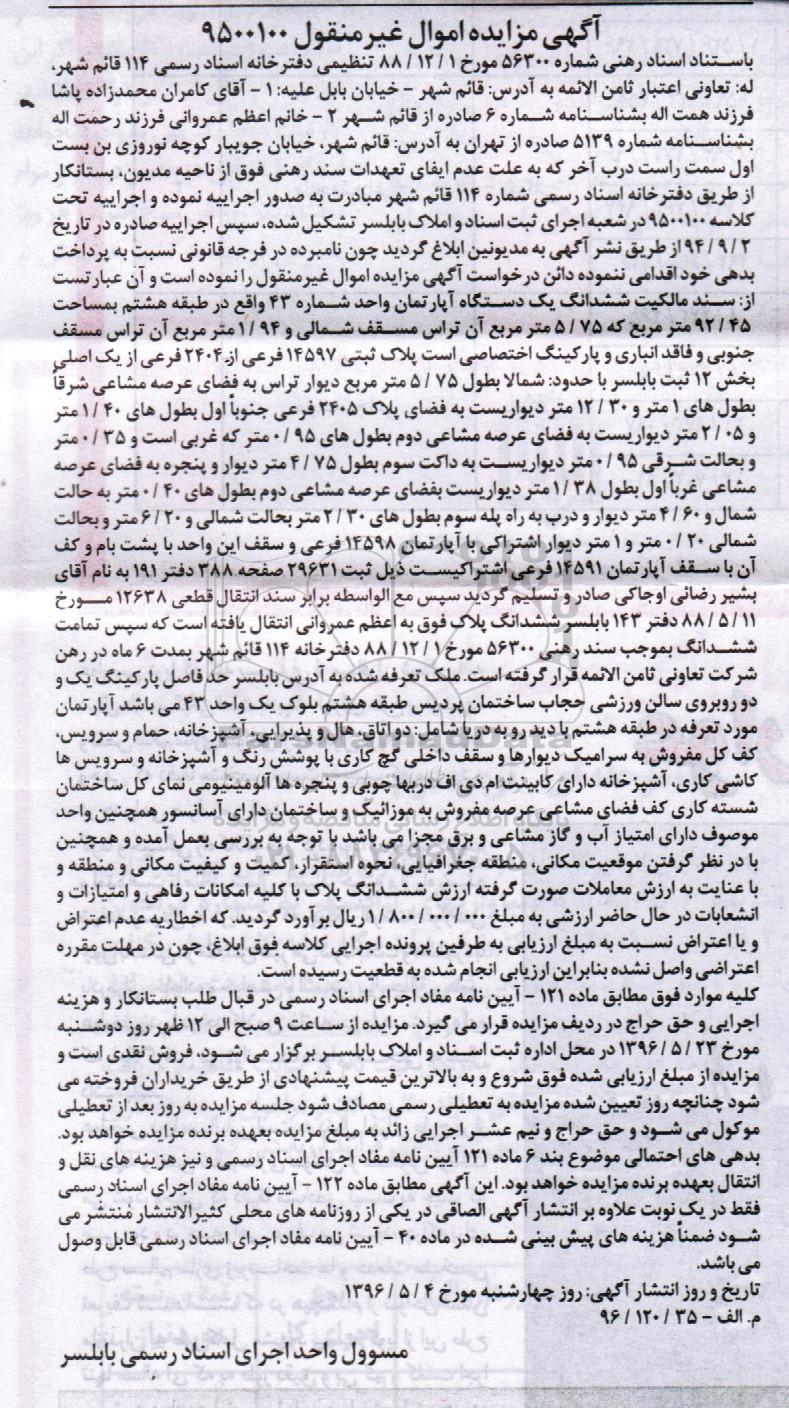 آگهی مزایده اموال غیرمنقول ۹۵۰۰۱۰۰
باستناد اسناد رهنی شماره ۵۶۳۰۰ مورخ ۱ / ۱۲ / ۸۸ تنظیمی دفترخانه اسناد رسمی ۱۱۴ قائم شهر،
له: تعاونی اعتبار ثامن الائمه به آدرس: قائم شهر - خیابان بابل علیه: ۱ - آقای کامران محمدزاده پاشا
فرزند همت اله بشناسنامه شماره ۶ صادره از قائم شهر ۲ - خانم اعظم عمروانی فرزند رحمت اله
بشناسنامه شماره ۵۱۳۹ صادره از تهران به آدرس: قائم شهر، خیابان جویبار کوچه نوروزی بن بست
اول سمت راست درب آخر که به علت عدم ایفای تعهدات سند رهنی فوق از ناحیه مدیون، بستانکار
از طریق دفترخانه اسناد رسمی شماره ۱۱۴ قائم شهر مبادرت به صدور اجراییه نموده و اجراییه تحت
کلاسه ۹۵۰۰۱۰۰ در شعبه اجرای ثبت اسناد و املاک بابلسر تشکیل شده، سپس اجراییه صادره در تاریخ
۲ / ۹ / ۹۴ از طریق نشر آگهی به مدیونین ابلاغ گردید چون نامبرده در فرجه قانونی نسبت به پرداخت
بدهی خود اقدامی ننموده دائن درخواست آگهی مزایده اموال غیرمنقول را نموده است و آن عبارتست
از: سند مالکیت ششدانگ یک دستگاه آپارتمان واحد شماره ۴۳ واقع در طبقه هشتم بمساحت
۴۵ / ۹۲ متر مربع که ۷۵ / ۵ متر مربع آن تراس مسقف شمالی و ۹۴ / ۱ متر مربع آن تراس مسقف
جنوبی و فاقد انباری و پارکینگ اختصاصی است پلاک ثبتی ۱۴۵۹۷ فرعی از ۲۴۰۴ فرعی از یک اصلی
بخش ۱۲ ثبت بابلسر با حدود: شمالا بطول ۷۵ / ۵ متر مربع دیوار تراس به فضای عرصه مشاعی شرقاً
بطول های ۱ متر و ۳۰ / ۱۲ متر دیواریست به فضای پلاک ۲۴۰۵ فرعی جنوباً اول بطول های ۴۰ / ۱ متر
و ۰۵ / ۲ متر دیواریست به فضای عرصه مشاعی دوم بطول های ۹۵ / ۰ متر که غربی است و ۳۵ / ۰ متر
و بحالت شرقی ۹۵ / ۰ متر دیواریست به داکت سوم بطول ۷۵ / ۴ متر دیوار و پنجره به فضای عرصه
مشاعی غرباً اول بطول ۳۸ / ۱ متر دیواریست بفضای عرصه مشاعی دوم بطول های ۴۰ / ۰ متر به حالت
شمال و ۶۰ / ۴ متر دیوار و درب به راه پله سوم بطول های ۳۰ / ۲ متر بحالت شمالی و ۲۰ / ۶ متر و بحالت
شمالی ۲۰ / ۰ متر و ۱ متر دیوار اشتراکی با آپارتمان ۱۴۵۹۸ فرعی و سقف این واحد با پشت بام و کف
آن با سقف آپارتمان ۱۴۵۹۱ فرعی اشتراکیست ذیل ثبت ۲۹۶۳۱ صفحه ۳۸۸ دفتر ۱۹۱ به نام آقای
بشیر رضائی اوجاکی صادر و تسلیم گردید سپس مع الواسطه برابر سند انتقال قطعی ۱۲۶۳۸ مورخ
۱۱ / ۵ / ۸۸ دفتر ۱۴۳ بابلسر ششدانگ پلاک فوق به اعظم عمروانی انتقال یافته است که سپس تمامت
ششدانگ بموجب سند رهنی ۵۶۳۰۰ مورخ ۱ / ۱۲ / ۸۸ دفترخانه ۱۱۴ قائم شهر بمدت ۶ ماه در رهن
شرکت تعاونی ثامن الائمه قرار گرفته است. ملک تعرفه شده به آدرس بابلسر حد فاصل پارکینگ یک و
دو روبروی سالن ورزشی حجاب ساختمان پردیس طبقه هشتم بلوک یک واحد ۴۳ می باشد آپارتمان
مورد تعرفه در طبقه هشتم با دید رو به دریا شامل: دو اتاق، هال و پذیرایی، آشپزخانه، حمام و سرویس،
کف کل مفروش به سرامیک دیوارها و سقف داخلی گچ کاری با پوشش رنگ و آشپزخانه و سرویس ها
کاشی کاری، آشپزخانه دارای کابینت ام دی اف دربها چوبی و پنجره ها آلومینیومی نمای کل ساختمان
شسته کاری کف فضای مشاعی عرصه مفروش به موزائیک و ساختمان دارای آسانسور همچنین واحد
موصوف دارای امتیاز آب و گاز مشاعی و برق مجزا می باشد با توجه به بررسی بعمل آمده و همچنین
با در نظر گرفتن موقعیت مکانی، منطقه جغرافیایی، نحوه استقرار، کمیت و کیفیت مکانی و منطقه و
با عنایت به ارزش معاملات صورت گرفته ارزش ششدانگ پلاک با کلیه امکانات رفاهی و امتیازات و
انشعابات در حال حاضر ارزشی به مبلغ ۰۰۰ / ۰۰۰ / ۸۰۰ / ۱ ریال برآورد گردید. که اخطاریه عدم اعتراض
و یا اعتراض نسبت به مبلغ ارزیابی به طرفین پرونده اجرایی کلاسه فوق ابلاغ، چون در مهلت مقرره
اعتراضی واصل نشده بنابراین ارزیابی انجام شده به قطعیت رسیده است.
کلیه موارد فوق مطابق ماده ۱۲۱ - آیین نامه مفاد اجرای اسناد رسمی در قبال طلب بستانکار و هزینه
اجرایی و حق حراج در ردیف مزایده قرار می گیرد. مزایده از ساعت ۹ صبح الی ۱۲ ظهر روز دوشنبه
مورخ ۲۳ / ۵ / ۱۳۹۶ در محل اداره ثبت اسناد و املاک بابلسر برگزار می شود، فروش نقدی است و
مزایده از مبلغ ارزیابی شده فوق شروع و به بالاترین قیمت پیشنهادی از طریق خریداران فروخته می
شود چنانچه روز تعیین شده مزایده به تعطیلی رسمی مصادف شود جلسه مزایده به روز بعد از تعطیلی
موکول می شود و حق حراج و نیم عشر اجرایی زائد به مبلغ مزایده بعهده برنده مزایده خواهد بود.
بدهی های احتمالی موضوع بند ۶ ماده ۱۲۱ آیین نامه مفاد اجرای اسناد رسمی و نیز هزینه های نقل و
انتقال بعهده برنده مزایده خواهد بود. این آگهی مطابق ماده ۱۲۲ - آیین نامه مفاد اجرای اسناد رسمی
فقط در یک نوبت علاوه بر انتشار آگهی الصاقی در یکی از روزنامه های محلی کثیرالانتشار منتشر می
شود ضمناً هزینه های پیش بینی شده در ماده ۴۰ - آیین نامه مفاد اجرای اسناد رسمی قابل وصول
می باشد.
تاریخ و روز انتشار آگهی: روز چهارشنبه مورخ ۴ / ۵ / ۱۳۹۶
م. الف - ۳۵ / ۱۲۰ / ۹۶
مسوول واحد اجرای اسناد رسمی بابلسر